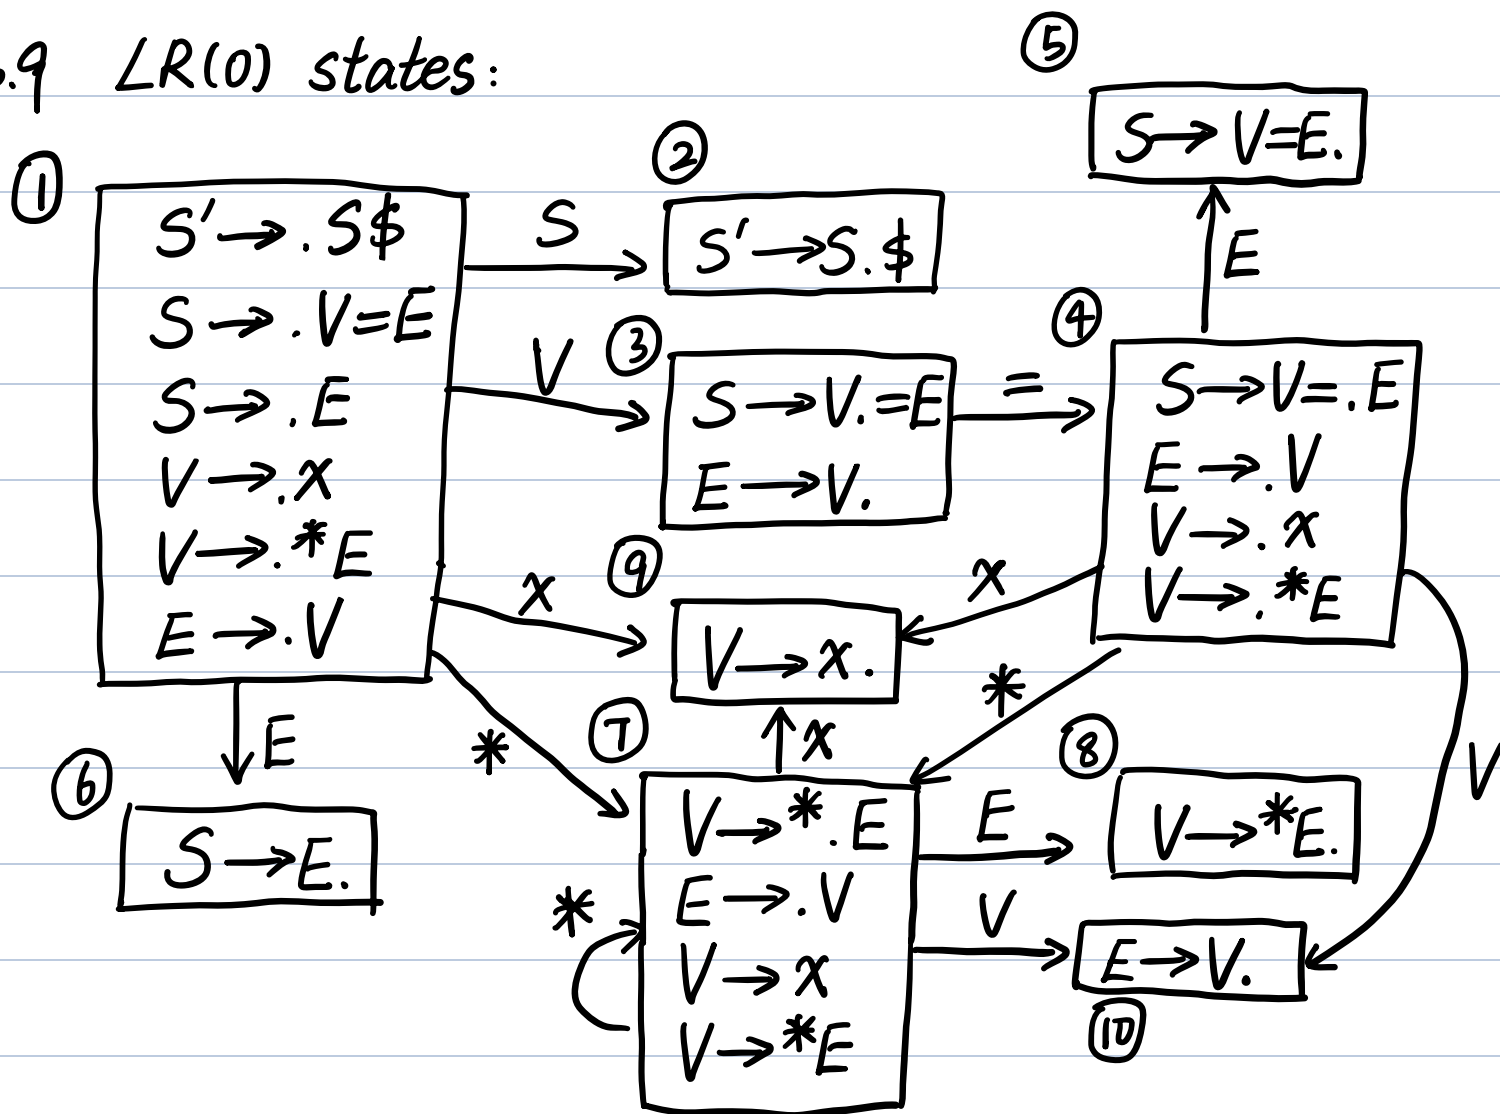 .9 LR(0) states:
①
S' → . S$
S → . V=E
S → . E
V → . x
V → . *E
E → . V
S
②
S' → S. $
V
③
S → V. =E
E → V.
=
④
S → V=. E
E → . V
V → . x
V → . *E
E
⑤
S → V=E.
x
⑨
V → x .
x
*
E
⑥
S → E.
*
x
⑦
V → * . E
E → . V
V → x
V → *E
*
E
⑧
V → *E.
V
E → V.
⑩
V